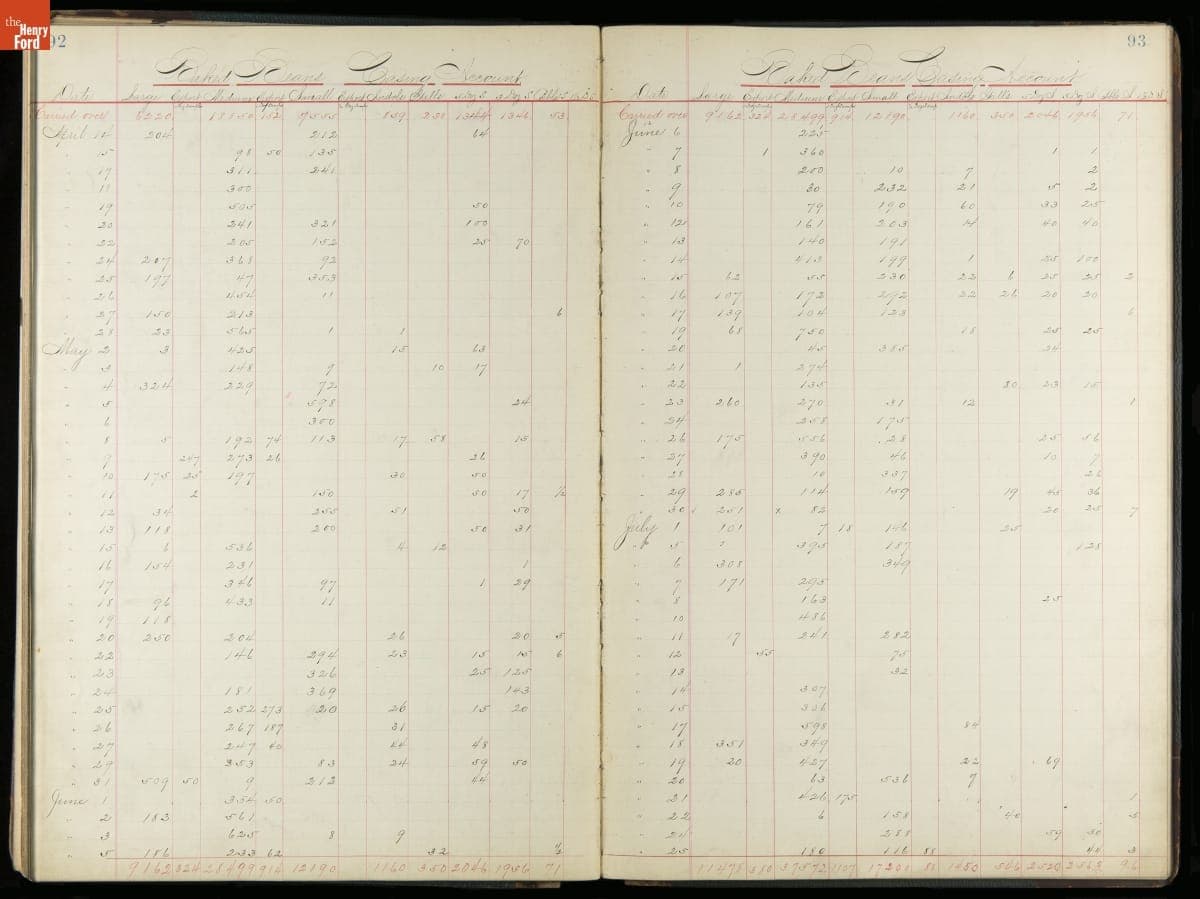 the Henry Ford
92
Baked Beans Casing Account
Date Large Export Medium Export Small Export
Carried over 6220 18850 152 9555 859 250 1344 1346 53
April 12 204 212 64
" 15 98 50 135
" 17 311 241
" 11 300
" 19 505 50
" 20 241 321 100
" 22 205 152 25 70
" 24 207 368 92
" 25 197 47 353
" 26 454 11
" 27 150 213 6
" 28 23 565 1 1
May 2 3 425 15 63
" 3 148 9 10 17
" 4 324 229 72
" 5 598 24
" 6 300
" 8 5 192 74 113 17 58 15
" 9 247 273 26 26
" 10 175 25 197 30 50
" 11 2 150 50 17 1/2
" 12 34 255 51 50
" 13 118 200 50 31
" 15 6 536 4 12
" 16 154 231 1
" 17 346 97 1 29
" 18 96 433 11
" 19 118
" 20 250 204 26 20 5
" 22 146 294 23 15 15 6
" 23 326 25 125
" 24 181 369 143
" 25 252 273 20 26 15 20
" 26 267 187 31
" 27 247 40 44 48
" 29 353 83 24 59 50
" 31 509 50 9 212 44
June 1 354 50
" 2 183 561
" 3 625 8 9
" 5 186 233 62 32 1/2
9162 324 28499 914 12190 1160 350 2046 1956 71
93
Baked Beans Casing Account
Date Large Export Medium Export Small Export
Carried over 9162 324 28499 914 12190 1160 350 2046 1956 71
June 6 225
" 7 1 360 1 1
" 8 200 10 7 2
" 9 30 232 21 5 2
" 10 79 190 60 33 25
" 12 161 203 14 40 40
" 13 140 191
" 14 413 199 1 25 100
" 15 62 55 230 22 6 25 25 2
" 16 107 172 292 22 26 20 20
" 17 139 104 123 6
" 19 68 750 18 25 25
" 20 45 385 24
" 21 1 274
" 22 135 80 23 15
" 23 260 270 31 12 1
" 24 258 175
" 26 175 556 28 25 56
" 27 390 46 10 7
" 28 10 337 26
" 29 285 114 159 19 45 36
" 30 251 x 82 20 25 7
July 1 101 7 18 146 25
" 5 395 187 128
" 6 308 349
" 7 171 295
" 8 163 25
" 10 486
" 11 17 241 282
" 12 55 75
" 13 32
" 14 307
" 15 336
" 17 598 84
" 18 351 349
" 19 20 427 22 69
" 20 63 536 7
" 21 426 175 1
" 22 6 158 40 5
" 24 288 59 30
" 25 180 116 88 44 3
11478 380 37572 1107 17201 88 1450 546 2520 2563 96